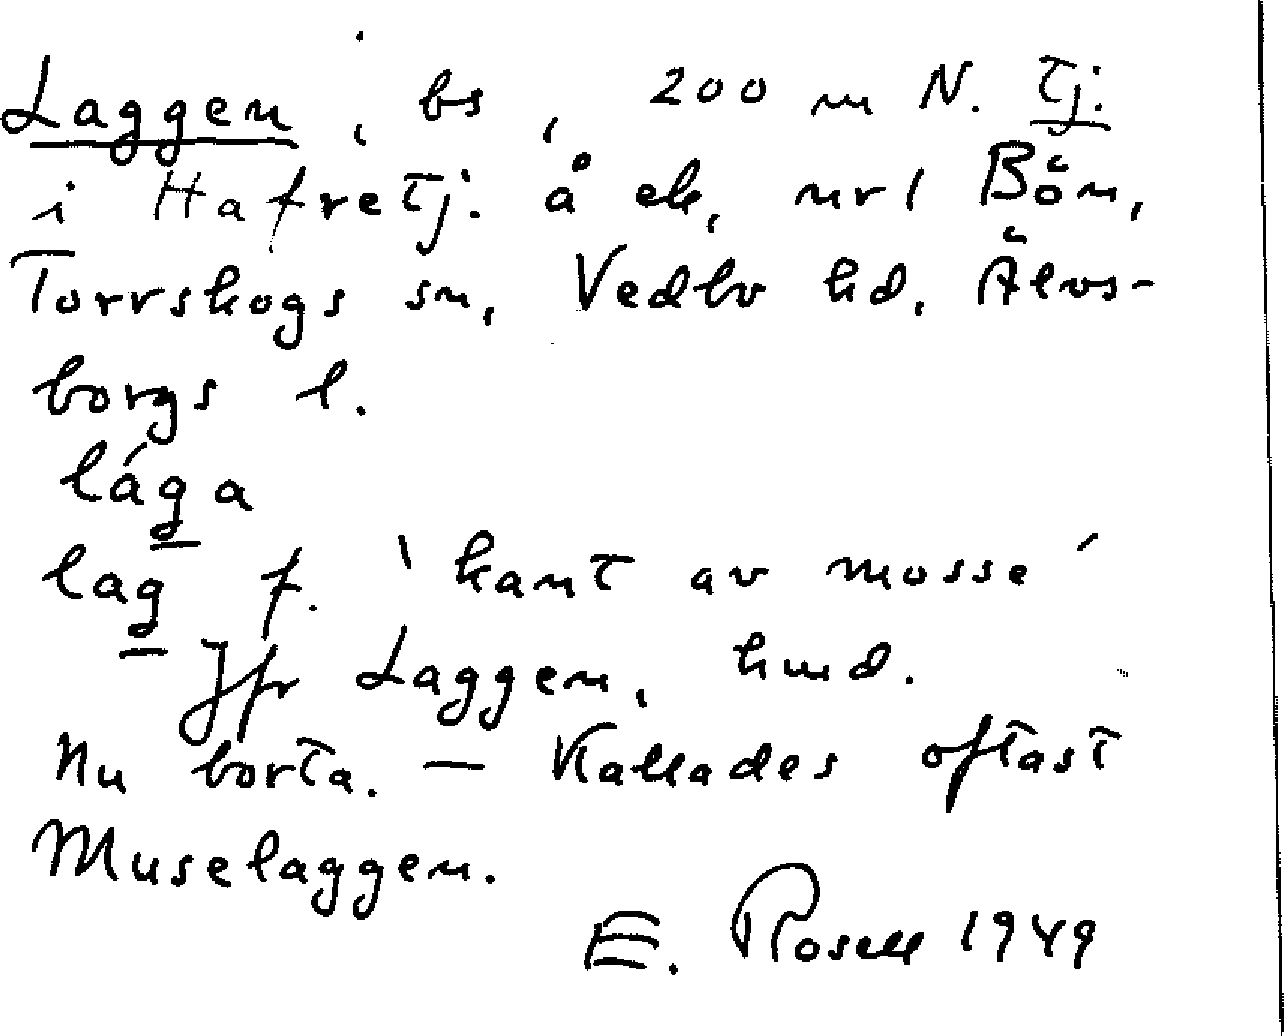 Laggen, bs, 200 m N. Tj.
i Hafretj. å ek, nr 1 Bön,
Torrskogs sn, Vedbo hd, Älvs-
borgs l.
lága
lag f. 'kant av mosse'
Jfr Laggen, hmd.
Nu borta. — Kallades oftast
Muselaggen.
E. Rosell 1949